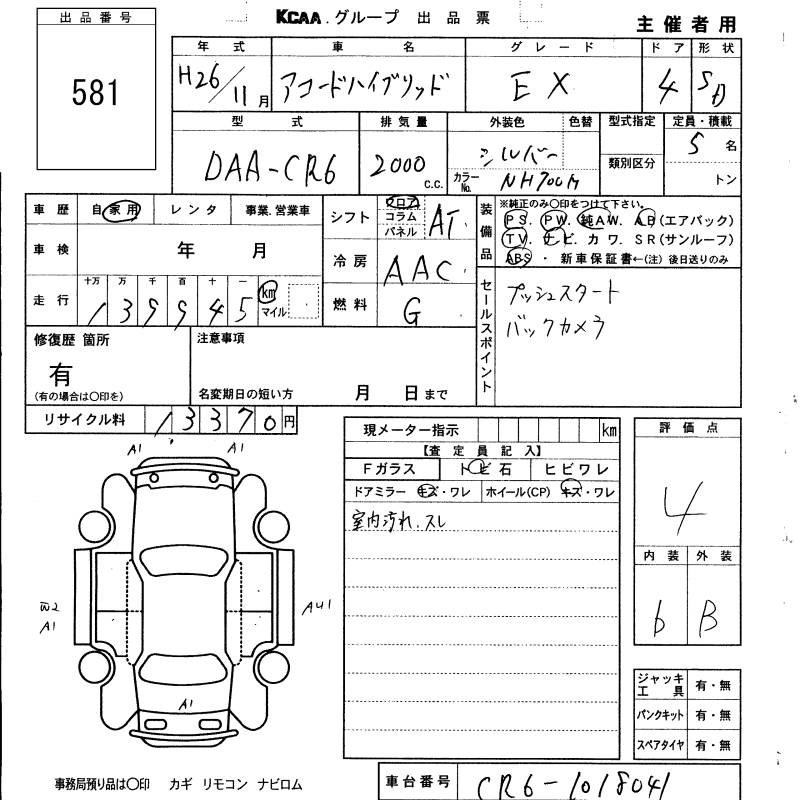 出品番号
581
KCAA.グループ 出品票
主催者用
年式 車名 グレード ドア 形状
H26/11月 アコードハイブリッド EX 4 SD
型式 排気量 外装色 色替 型式指定 定員・積載
DAA-CR6 2000 c.c. シルバー 類別区分 5名
カラーNo. NH700M トン
車歴 自家用 レンタ 事業.営業車
シフト フロア コラム パネル AT
車検 年 月
冷房 AAC
走行 十万 万 千 百 十 一
139945 km マイル
燃料 G
装備品
※純正のみ〇印をつけて下さい。
PS. PW. 純AW. AB(エアバック)
TV. ナビ. カワ. SR(サンルーフ)
ABS ・ 新車保証書←(注) 後日送りのみ
セールスポイント
プッシュスタート
バックカメラ
修復歴 箇所
有
(有の場合は〇印を)
注意事項
名変期日の短い方 月 日まで
リサイクル料 13370円
現メーター指示 km
【査定員記入】
Fガラス トビ石 ヒビワレ
ドアミラー キズ・ワレ ホイール(CP) キズ・ワレ
室内汚れ.スレ
評価点
4
内装 外装
b B
ジャッキ工具 有・無
パンクキット 有・無
スペアタイヤ 有・無
A1 A1
W2
A1
AU1
A1
事務局預り品は〇印 カギ リモコン ナビロム
車台番号 CR6-1018041